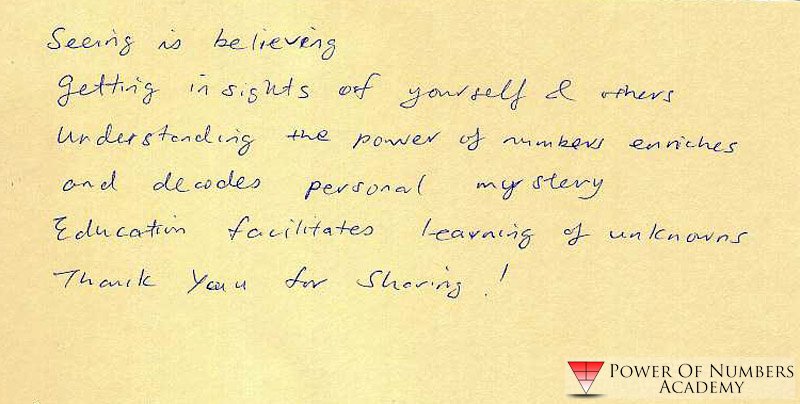 Seeing is believing
Getting insights of yourself & others
Understanding the power of numbers enriches
and decodes personal mystery
Education facilitates learning of unknowns
Thank You for Sharing!
POWER OF NUMBERS
ACADEMY